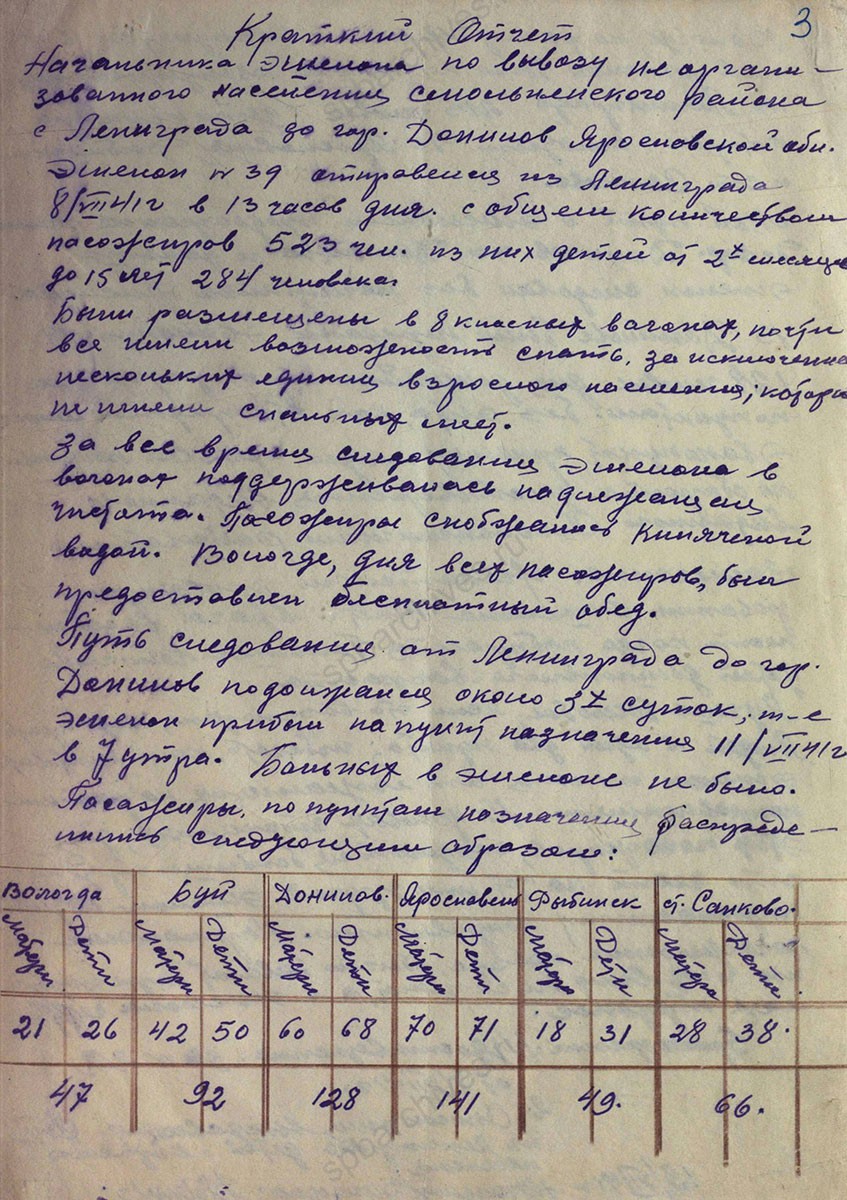 3
Краткий Отчет
Начальника эшелона по вывозу не органи-
зованного населения Смольнинского района
с Ленинграда до гор. Данилов Ярославской обл.
Эшелон № 39 отправлен из Ленинграда
8/VII 41 г в 13 часов дня. с общем количеством
пасажиров 523 чел. из них детей от 2х месяцев
до 15 лет 284 человека.
Были размещены в 8 класных вагонах, почти
все имели возможность спать, за исключение
нескольких единиц взрослого населения, которые
не имели спальных мест.
За все время следования эшелона в
вагонах поддерживалась надлежащая
чистота. Пасажиры снобжались кипяченой
водой. Вологде, для всех пасажиров, был
предоставлен бесплатный обед.
Путь следования от Ленинграда до гор.
Данилов продолжался около 3х суток, т-е
эшелон прибыл на пункт назначения 11/VII 41 г
в 7 утра. Больных в эшелоне не было.
Пасажиры, по пунктам назначения распреде-
лились следующим образом:
Вологда Буй Данилов. Ярославль Рыбинск ст. Санково.
Матери Дети Матери Дети Матери Дети Матери Дети Матери Дети Матери Дети
21 26 42 50 60 68 70 71 18 31 28 38.
47 92 128 141 49. 66.